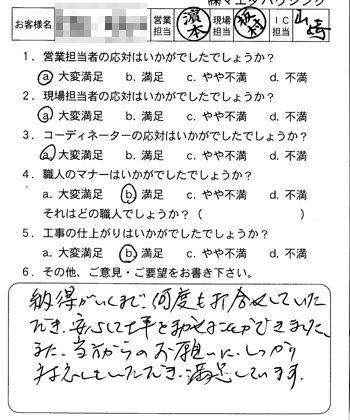 ㈱マエダハウジング
お客様名 営業担当 濱本 現場担当 ＩＣ担当 山崎
１．営業担当者の応対はいかがでしたでしょうか？
a. 大変満足 b. 満足 c. やや不満 d. 不満
２．現場担当者の応対はいかがでしたでしょうか？
a. 大変満足 b. 満足 c. やや不満 d. 不満
３．コーディネーターの応対はいかがでしたでしょうか？
a. 大変満足 b. 満足 c. やや不満 d. 不満
４．職人のマナーはいかがでしたでしょうか？
a. 大変満足 b. 満足 c. やや不満 d. 不満
それはどの職人でしょうか？（ ）
５．工事の仕上がりはいかがでしたでしょうか？
a. 大変満足 b. 満足 c. やや不満 d. 不満
６．その他、ご意見・ご要望をお書き下さい。
納得がいくまで、何度も打合せしていた
だき、安心して工事をお任せすることができました。
また、当方からのお願いに、しっかり
対応していただき、満足しています。